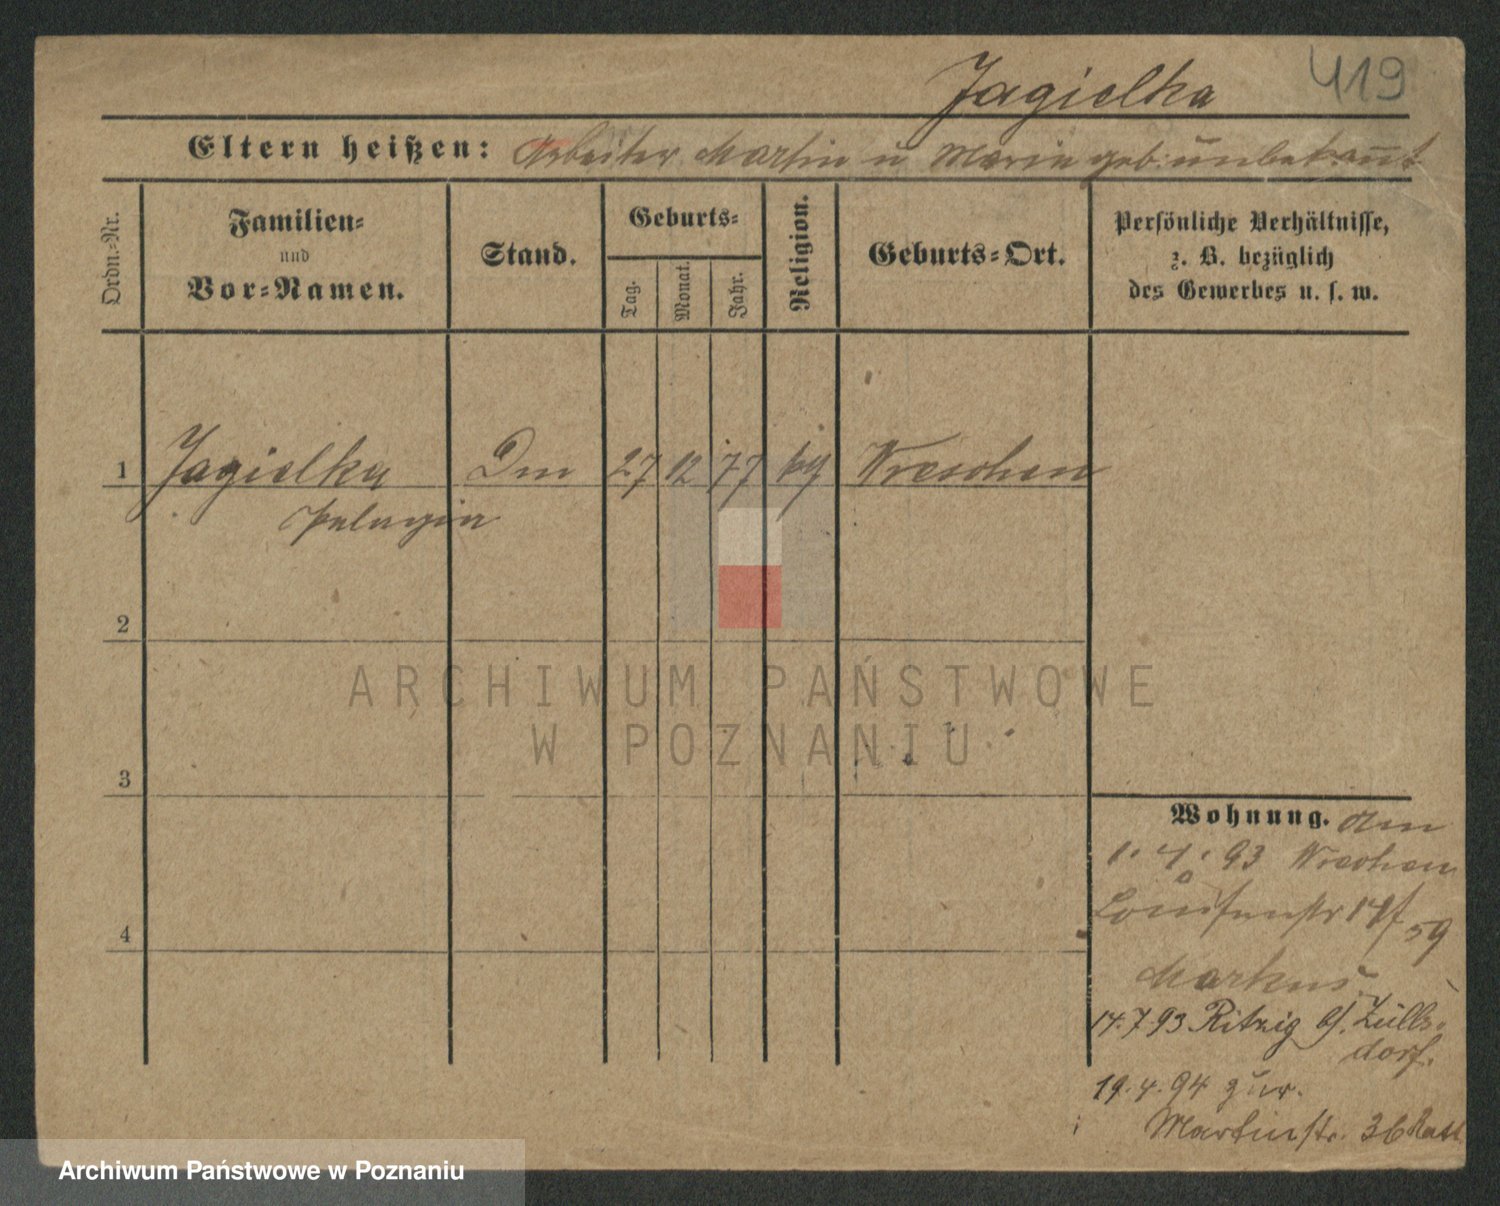 Jagielka 419
Eltern heißen: Arbeiter Martin u Marie geb. unbekannt
Ordn.-Nr.
Familien-
und
Vor-Namen.
Stand.
Geburts-
Tag.
Monat.
Jahr.
Religion.
Geburts-Ort.
Persönliche Verhältnisse,
z. B. bezüglich
des Gewerbes u. s. w.
1 Jagielka Dm 27 12 77 kg Wreschen
Pelagia
2
3
4
ARCHIWUM PAŃSTWOWE
W POZNANIU
Wohnung. am
1. 4. 93 Wreschen
Louisenstr 14/
59
Markus
14.7.93 Ritzig b/. Züllsdorf.
19.4.94 zur.
Martinstr. 36
Archiwum Państwowe w Poznaniu